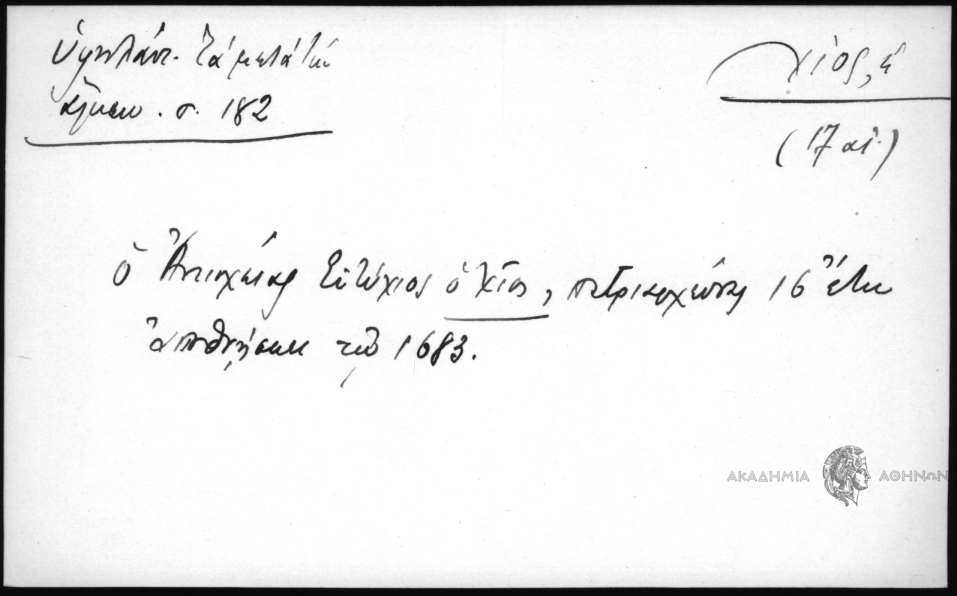 Ὑψηλάντ. Τὰ μετὰ τὴν
ἅλωσιν. σ. 182
Χίος, ἡ
(17 αἰ.)
ὁ Ἀντιοχείας Εὐτύχιος ὁ Χῖος, πατριαρχεύσας 16 ἔτη
ἀποθνήσκει τῷ 1683.
ΑΚΑΔΗΜΙΑ ΑΘΗΝΩΝ